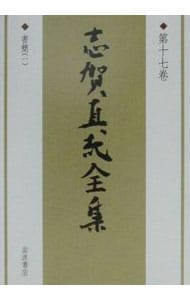 ◆第十七巻
志賀直哉全集
◆書簡(一)
岩波書店